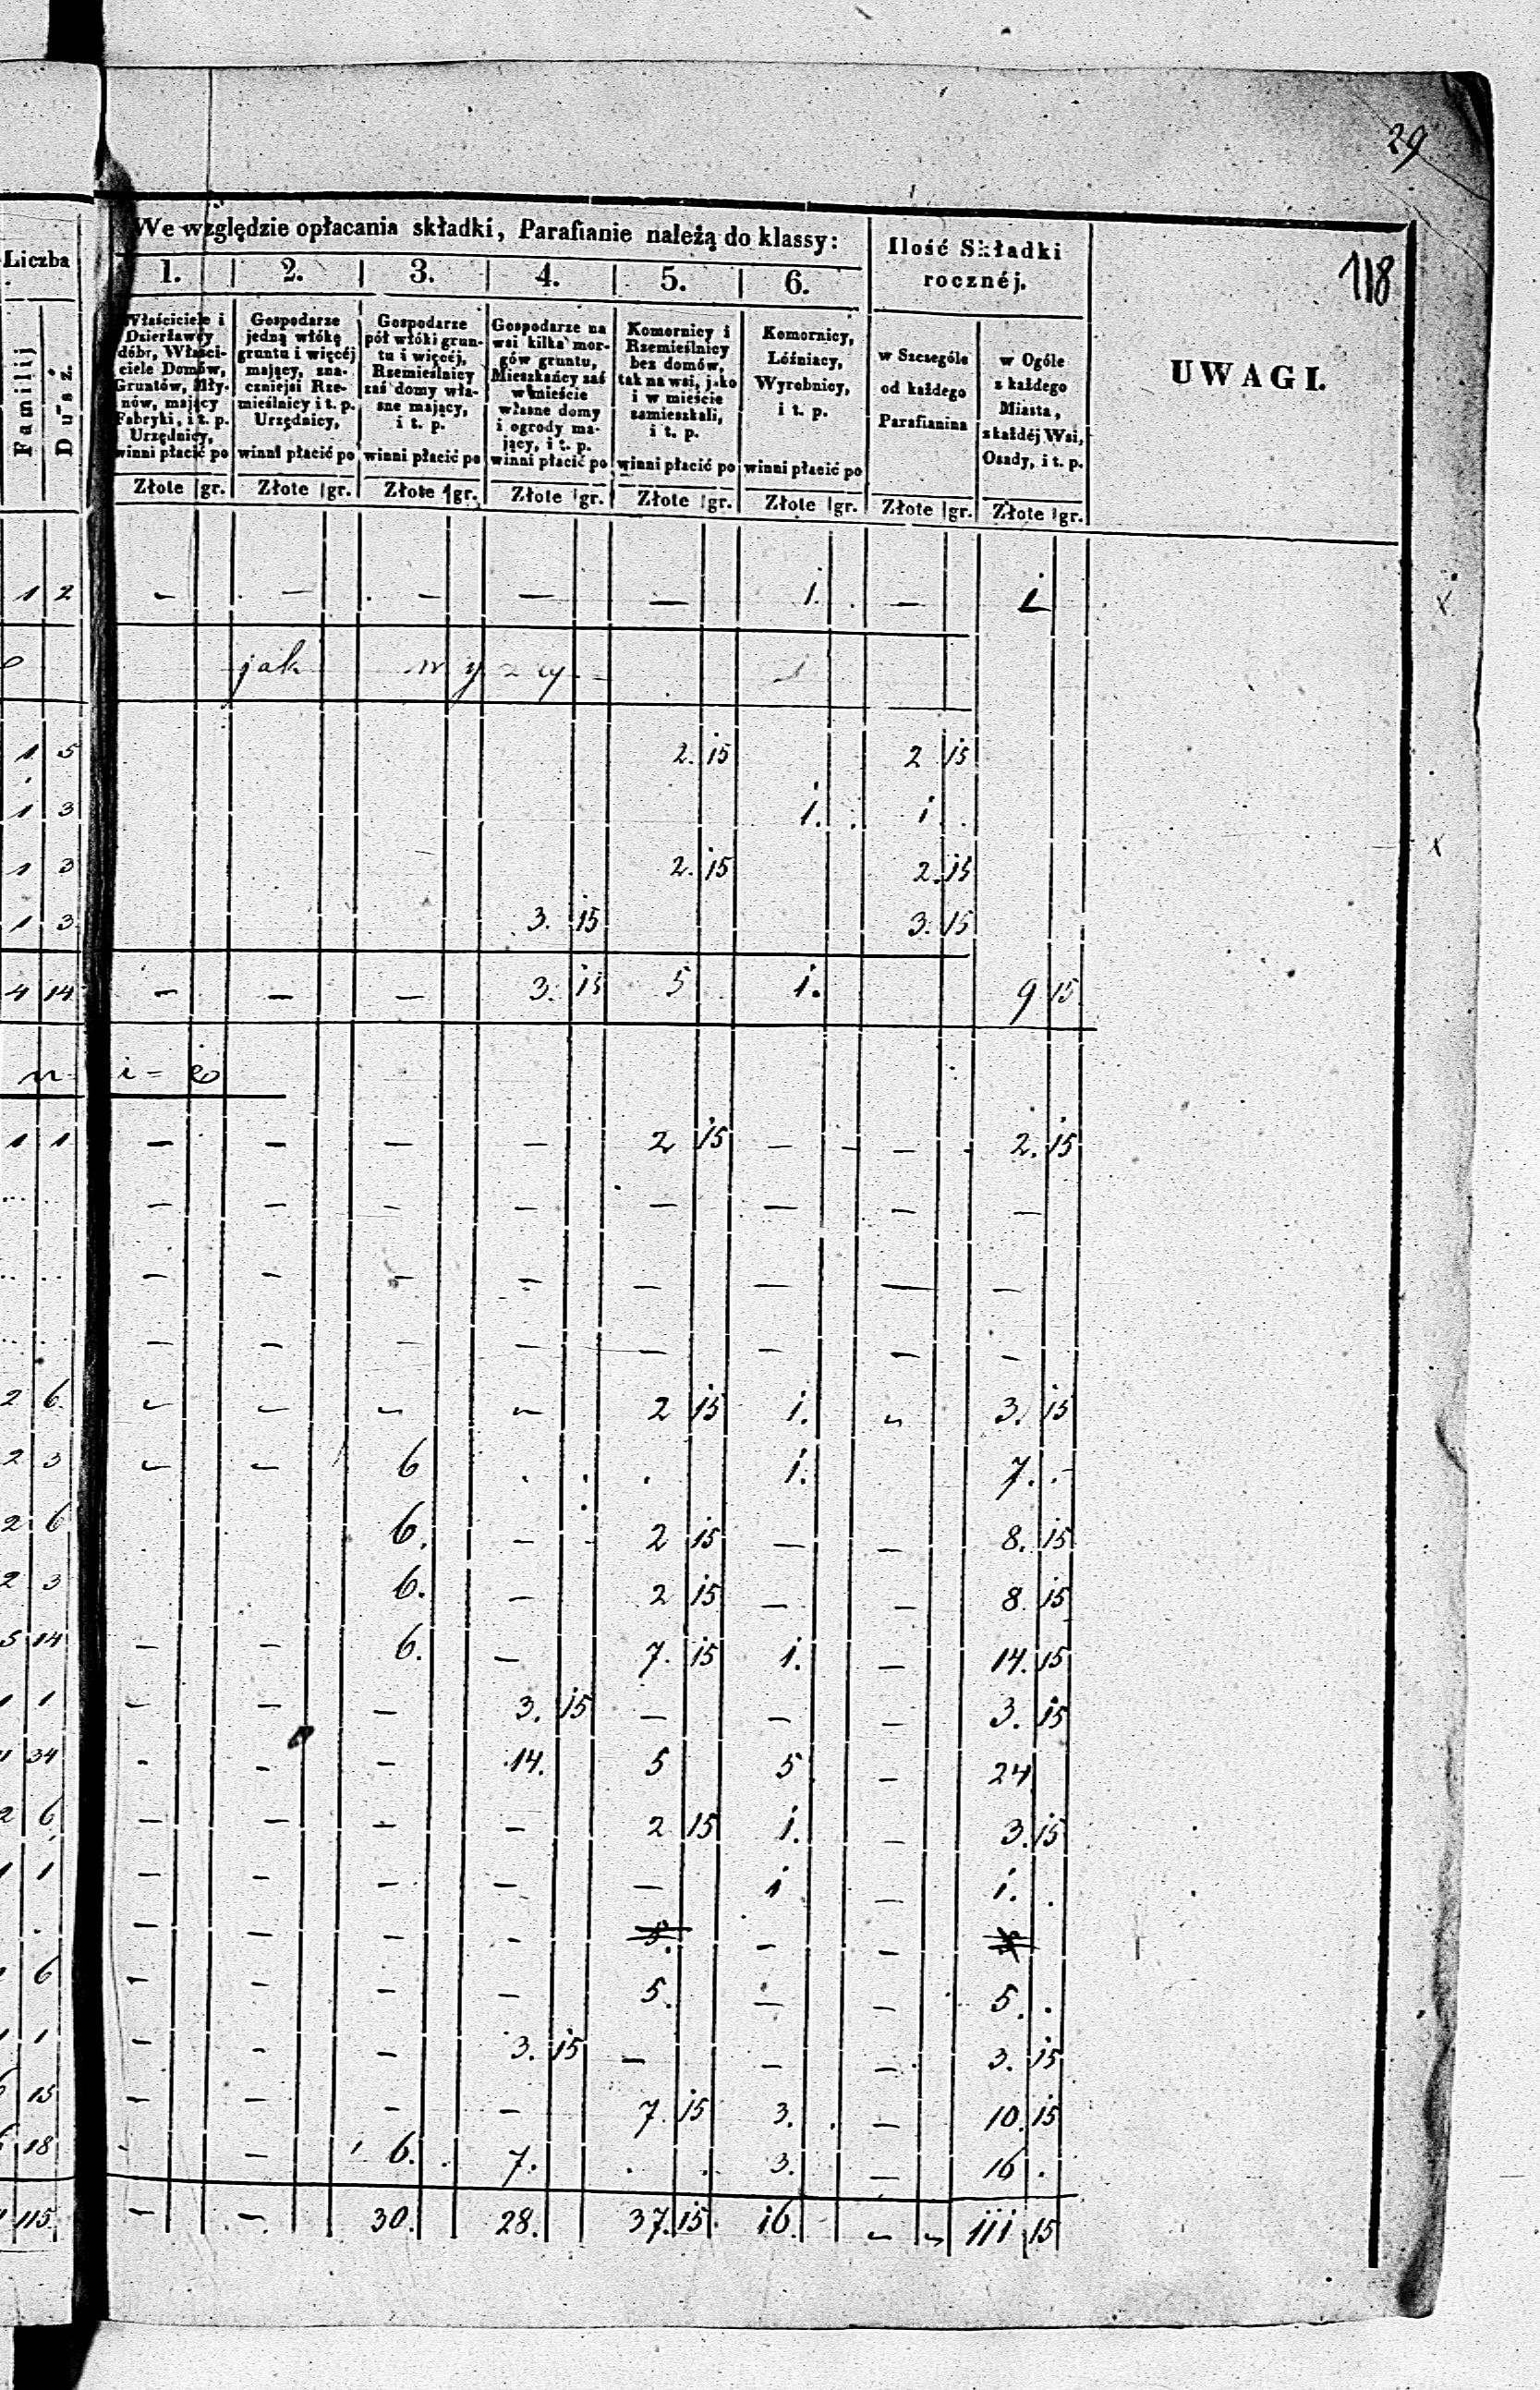 29
118
We względzie opłacania składki, Parafianie należą do klassy:
Ilość Składki rocznéj.
UWAGI.
Liczba
1. 2. 3. 4. 5. 6.
Familij
Dusz.
Właściciele i Dzierżawcy dóbr, Właściciele Domów, Gruntów, Młynów, mający Fabryki, i t. p. Urzędnicy, winni płacić po
Gospodarze jedną włókę gruntu i więcéj mający, znaczniejsi Rzemieślnicy i t. p. Urzędnicy, winni płacić po
Gospodarze pół włóki gruntu i więcéj, Rzemieślnicy zaś domy własne mający, i t. p. winni płacić po
Gospodarze na wsi kilka morgów gruntu, Mieszkańcy zaś w mieście własne domy i ogrody mający, i t. p. winni płacić po
Komornicy i Rzemieślnicy bez domów, tak na wsi, jako i w mieście zamieszkali, i t. p. winni płacić po
Komornicy, Lóźniacy, Wyrobnicy, i t. p. winni płacić po
w Szczególe od każdego Parafianina
w Ogóle z każdego Miasta, z każdéj Wsi, Osady, i t. p.
Złote gr. Złote gr. Złote gr. Złote gr. Złote gr. Złote gr. Złote gr. Złote gr.
1 2 — — — — — 1. — 1
jak wyzy
1 5 2. 15 2 15
1 3 1. 1
1 3 2. 15 2. 15
1 3 3. 15 3. 15
4 14 — — — 3. 15 5 1. 9 15
1 1 — — — — 2 15 — — — 2. 15
— — — — — — — —
— — — — — — — —
— — — — — — — —
2 6 — — — — 2 15 1. — 3. 15
2 3 — — 6 1. 7.
2 6 6. — 2 15 — — 8. 15
2 3 6. — 2 15 — — 8. 15
5 14 — — 6. — 7. 15 1. — 14. 15
1 1 — — — 3. 15 — — — 3. 15
34 — — — 14. 5 5 — 24
2 6 — — — — 2 15 1. — 3. 15
1 1 — — — — — 1 — 1.
— — — — 5. — —
6 — — — — 5. — — 5.
1 1 — — — 3. 15 — — — 3. 15
6 15 — — — — 7. 15 3. — 10. 15
6 18 — — 6. 7. 3. — 16
115. — — 30. 28. 37. 15 16. — — 111 15